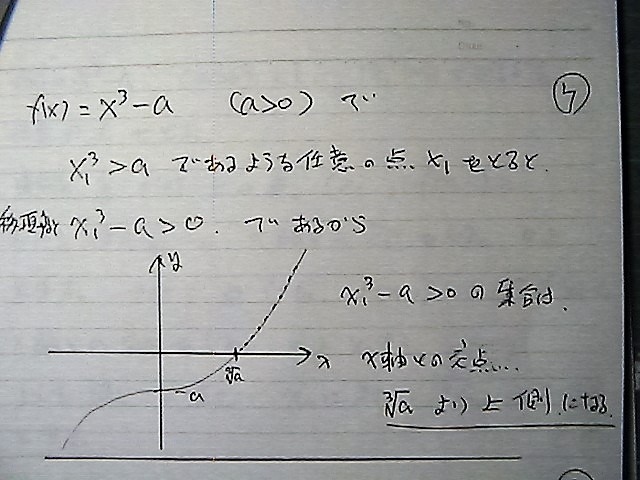 f(x) = x³ - a (a>0) で
㋐
x₁³ > a であるような任意の点 x₁ をとると、
移項すると x₁³ - a > 0. であるから
y
x₁³ - a > 0 の集合は、
x
x軸との交点...
∛a
-a
∛a より上側になる